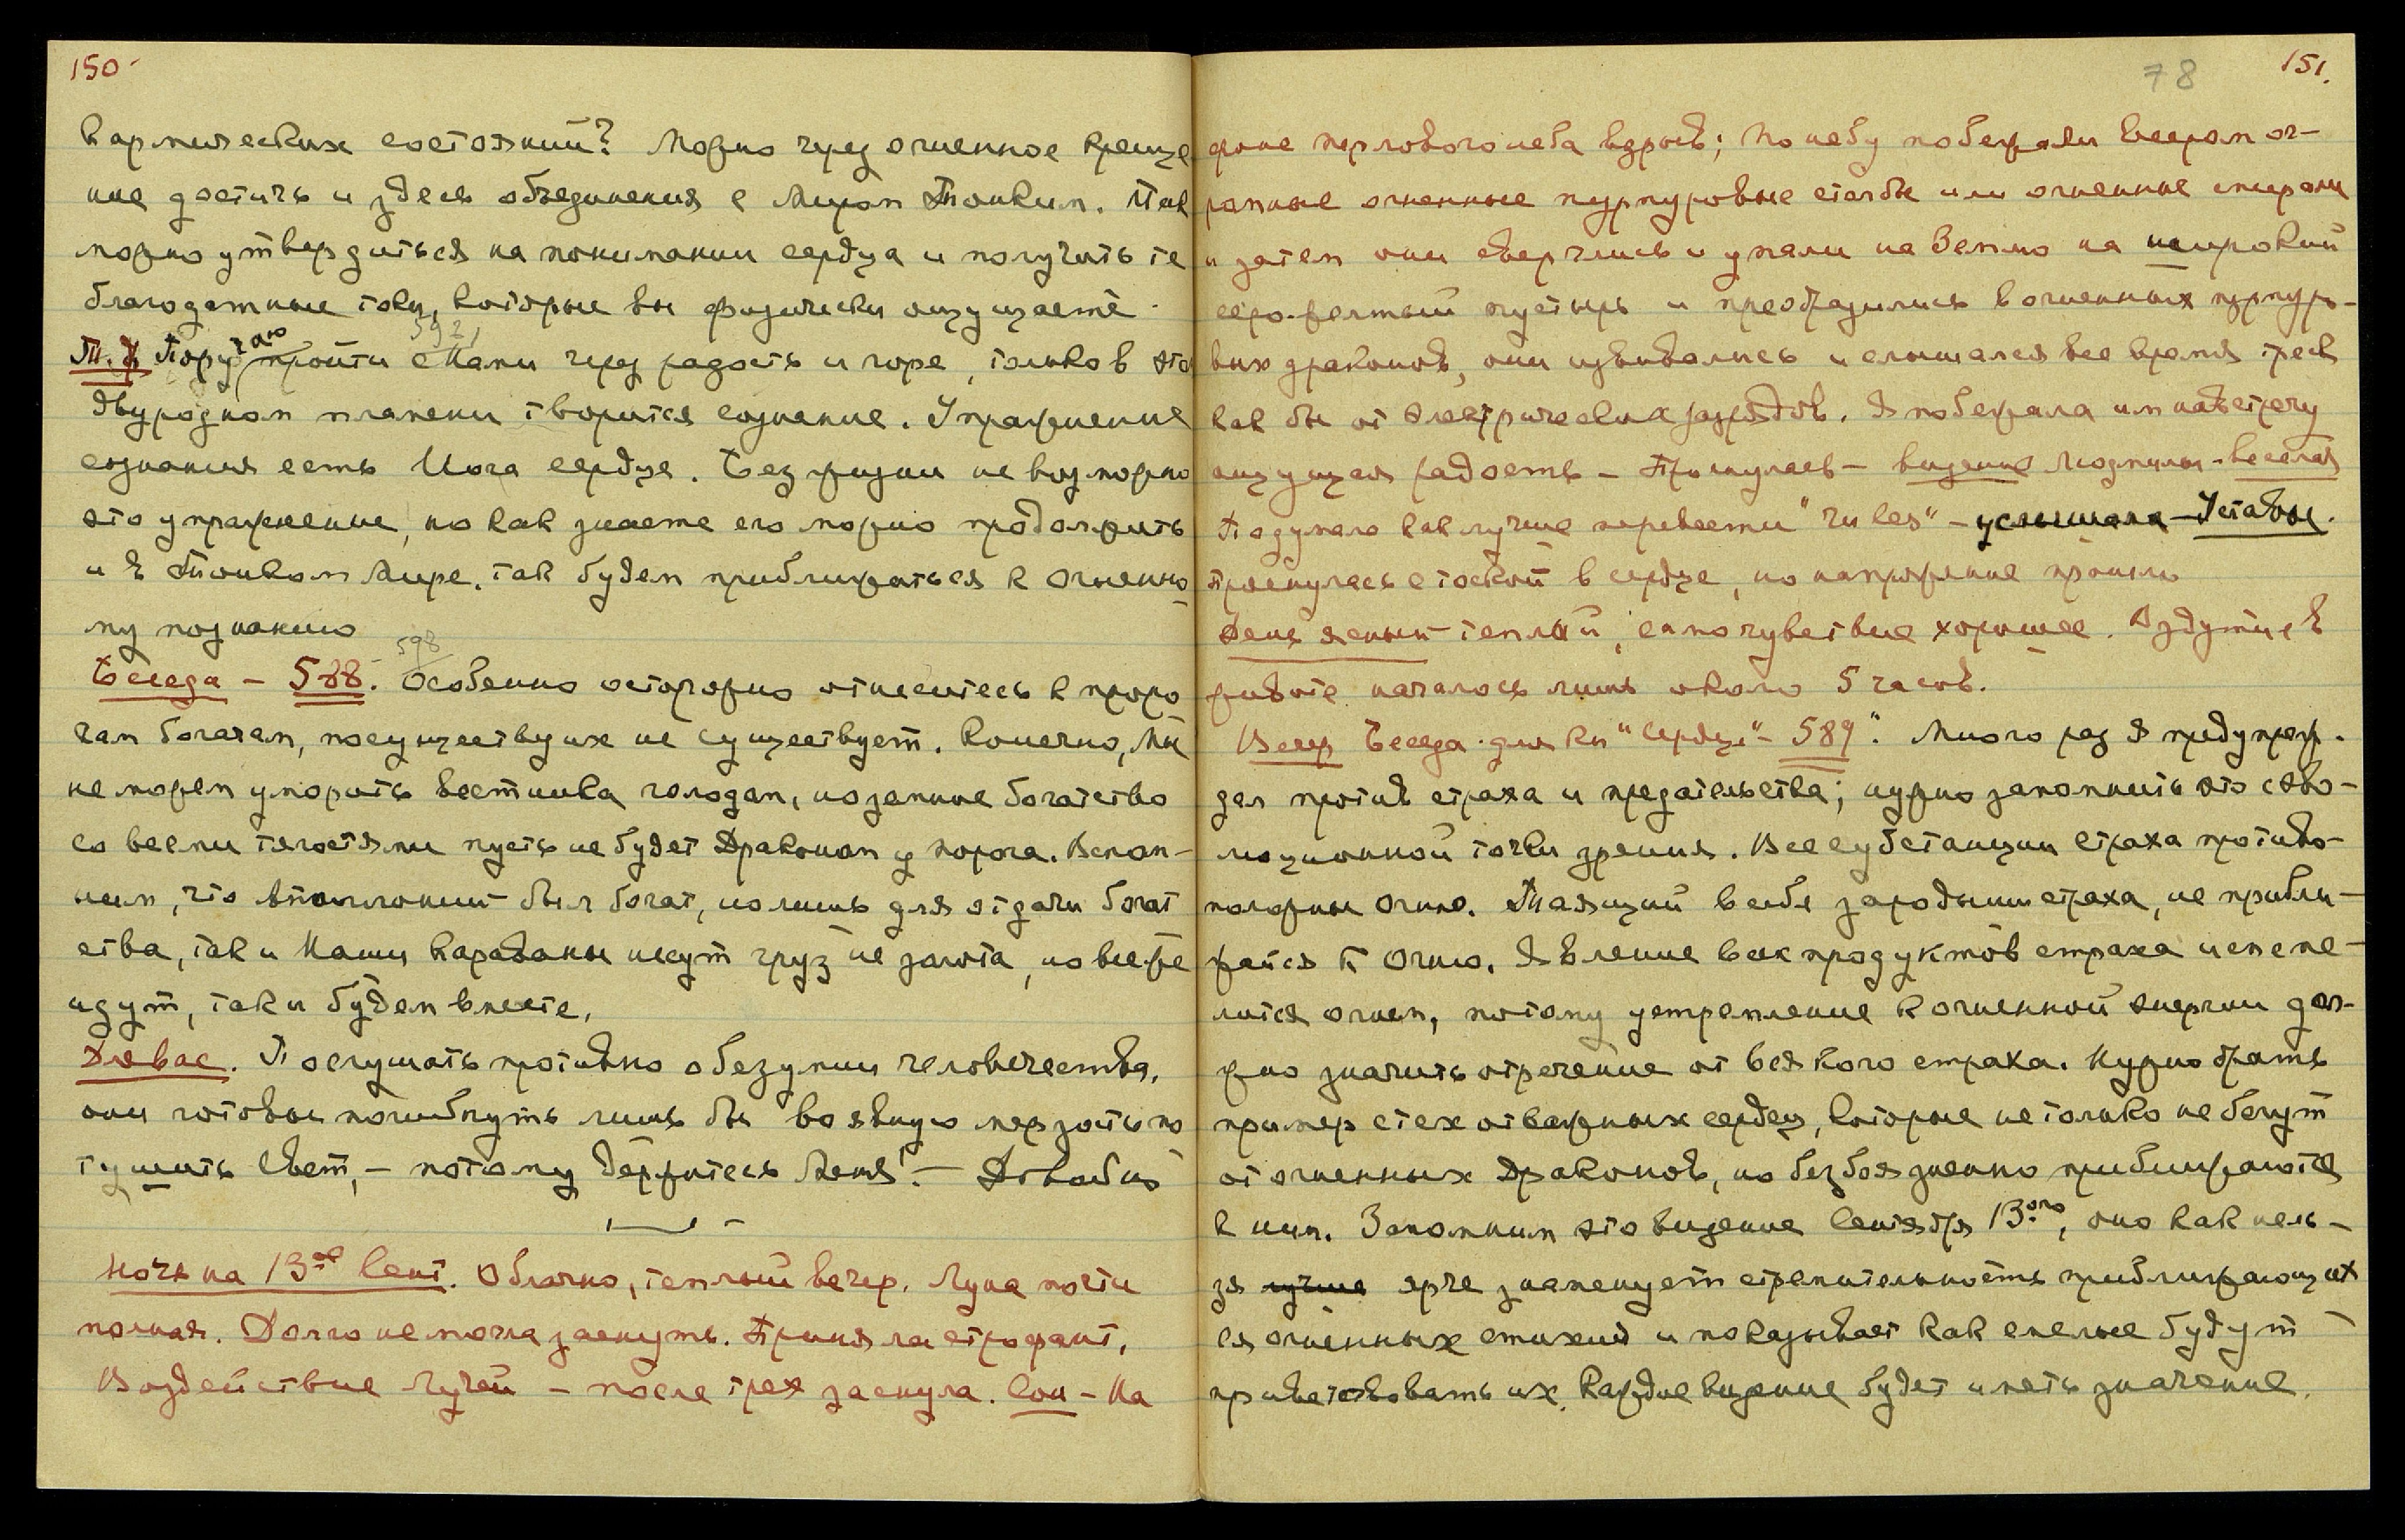 150
кармических состояний? Можно через огненное креще
ние достичь и здесь объединения с Миром Тонким. Так
можно утвердиться на понимании сердца и получить те
благодатные токи, которые вы физически ощущаете.
592
Т. д. Поручаю пройти с Нами через радость и горе, только в это
двуродном пламени творится сознание. Упражнение
сознания есть Йога сердца. Без жизни невозможно
это упражнение, но как знаете его можно продолжить
и в Тонком Мире. Так будем приближаться к Огненно
му познанию
598
Беседа – 588. Особенно осторожно отнеситесь к проро
кам богачам, посуществу их не существует. Конечно, Мы
не можем уморить вестника голодом, но земное богатство
со всеми тягостями пусть не будет Драконом у порога. Вспом-
ним, что Аполлоний был богат, но лишь для отдачи богат
ства, так и Наши караваны несут груз не золота, но все же
идут, так и будем вместе.
Для вас. Послушать противно о безумии человечества,
они готовы погибнуть лишь бы воявную мерзость по
тушить Свет, – потому держитесь Меня! – Довольно
Ночь на 13ое Сент. Облачно, теплый вечер. Луна почти
полная. Долго не могла заснуть. Приняла строфант,
Воздействие Лучей – после трех заснула. Сон – На
78
151.
фоне перлового неба вдрызг; по небу побежали веером ог-
ромные огненные пурпуровые столбы или огненные спирали
и затем они свергались и упали на Землю на широкий
серо-желтый пустырь и преобразились в огненных пурпуро-
вых драконов, они извивались и слышался все время треск
как бы от электрических разрядов. Я побежала им навстречу
ощущая радость – Проснулась – видение Людмилы – веселая
Подумала как лучше перевести "rules" – услышала – Уставы.
Проснулась с тоской в сердце, но напряжение прошло
День ясный теплый, самочувствие хорошее. Вздутие в
животе началось лишь около 5 часов.
Вечер Беседа для кн "Сердце" – 589". Много раз Я предупреж-
дал против страха и предательства; нужно запомнить это с эво-
люционной точки зрения. Все субстанции страха противо-
положны Огню. Таящий в себе зародыш страха, не прибли-
жайся к Огню. Явление всех продуктов страха испепе-
лится огнем, потому устремление к огненной энергии дол-
жно значить отречение от всякого страха. Нужно брать
пример с тех отважных сердец, которые не только не бегут
от огненных Драконов, но безбоязненно приближаются
к ним. Запомним это видение Сентября 13ого, оно как нель-
зя лучше ярче знаменует стремительность приближающих
ся огненных стихий и показывает как смелые будут
приветствовать их. Каждое видение будет иметь значение.